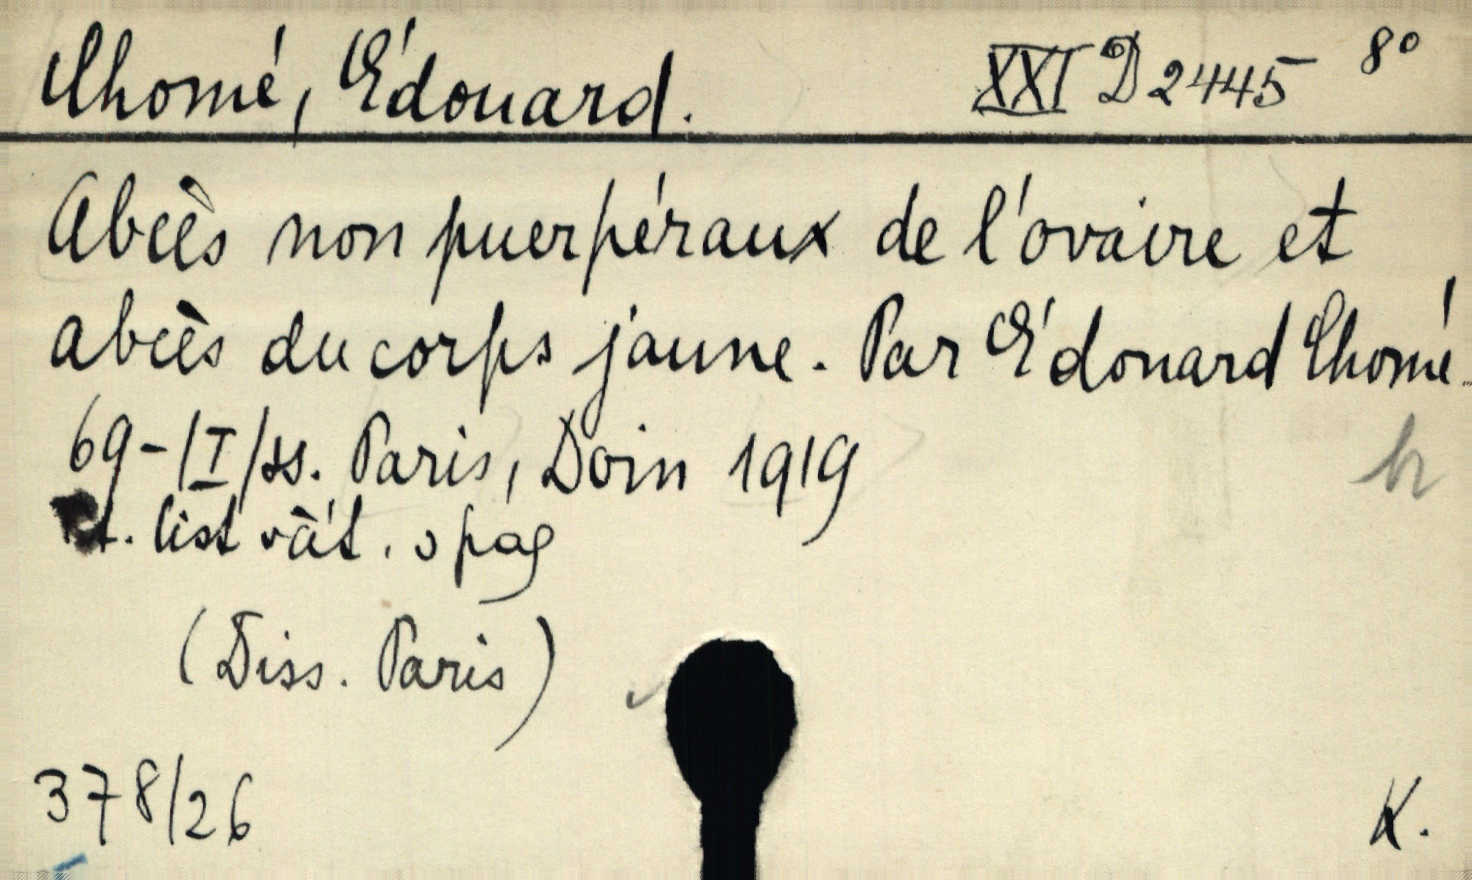 Chomé, Édouard. XXI D 2445 8°
Abcès non puerpéraux de l'ovaire et
abcès du corps jaune. Par Édouard Chomé.
69-/I/ss. Paris, Doin 1919
t. list vät. s pag
(Diss. Paris)
378/26 K.